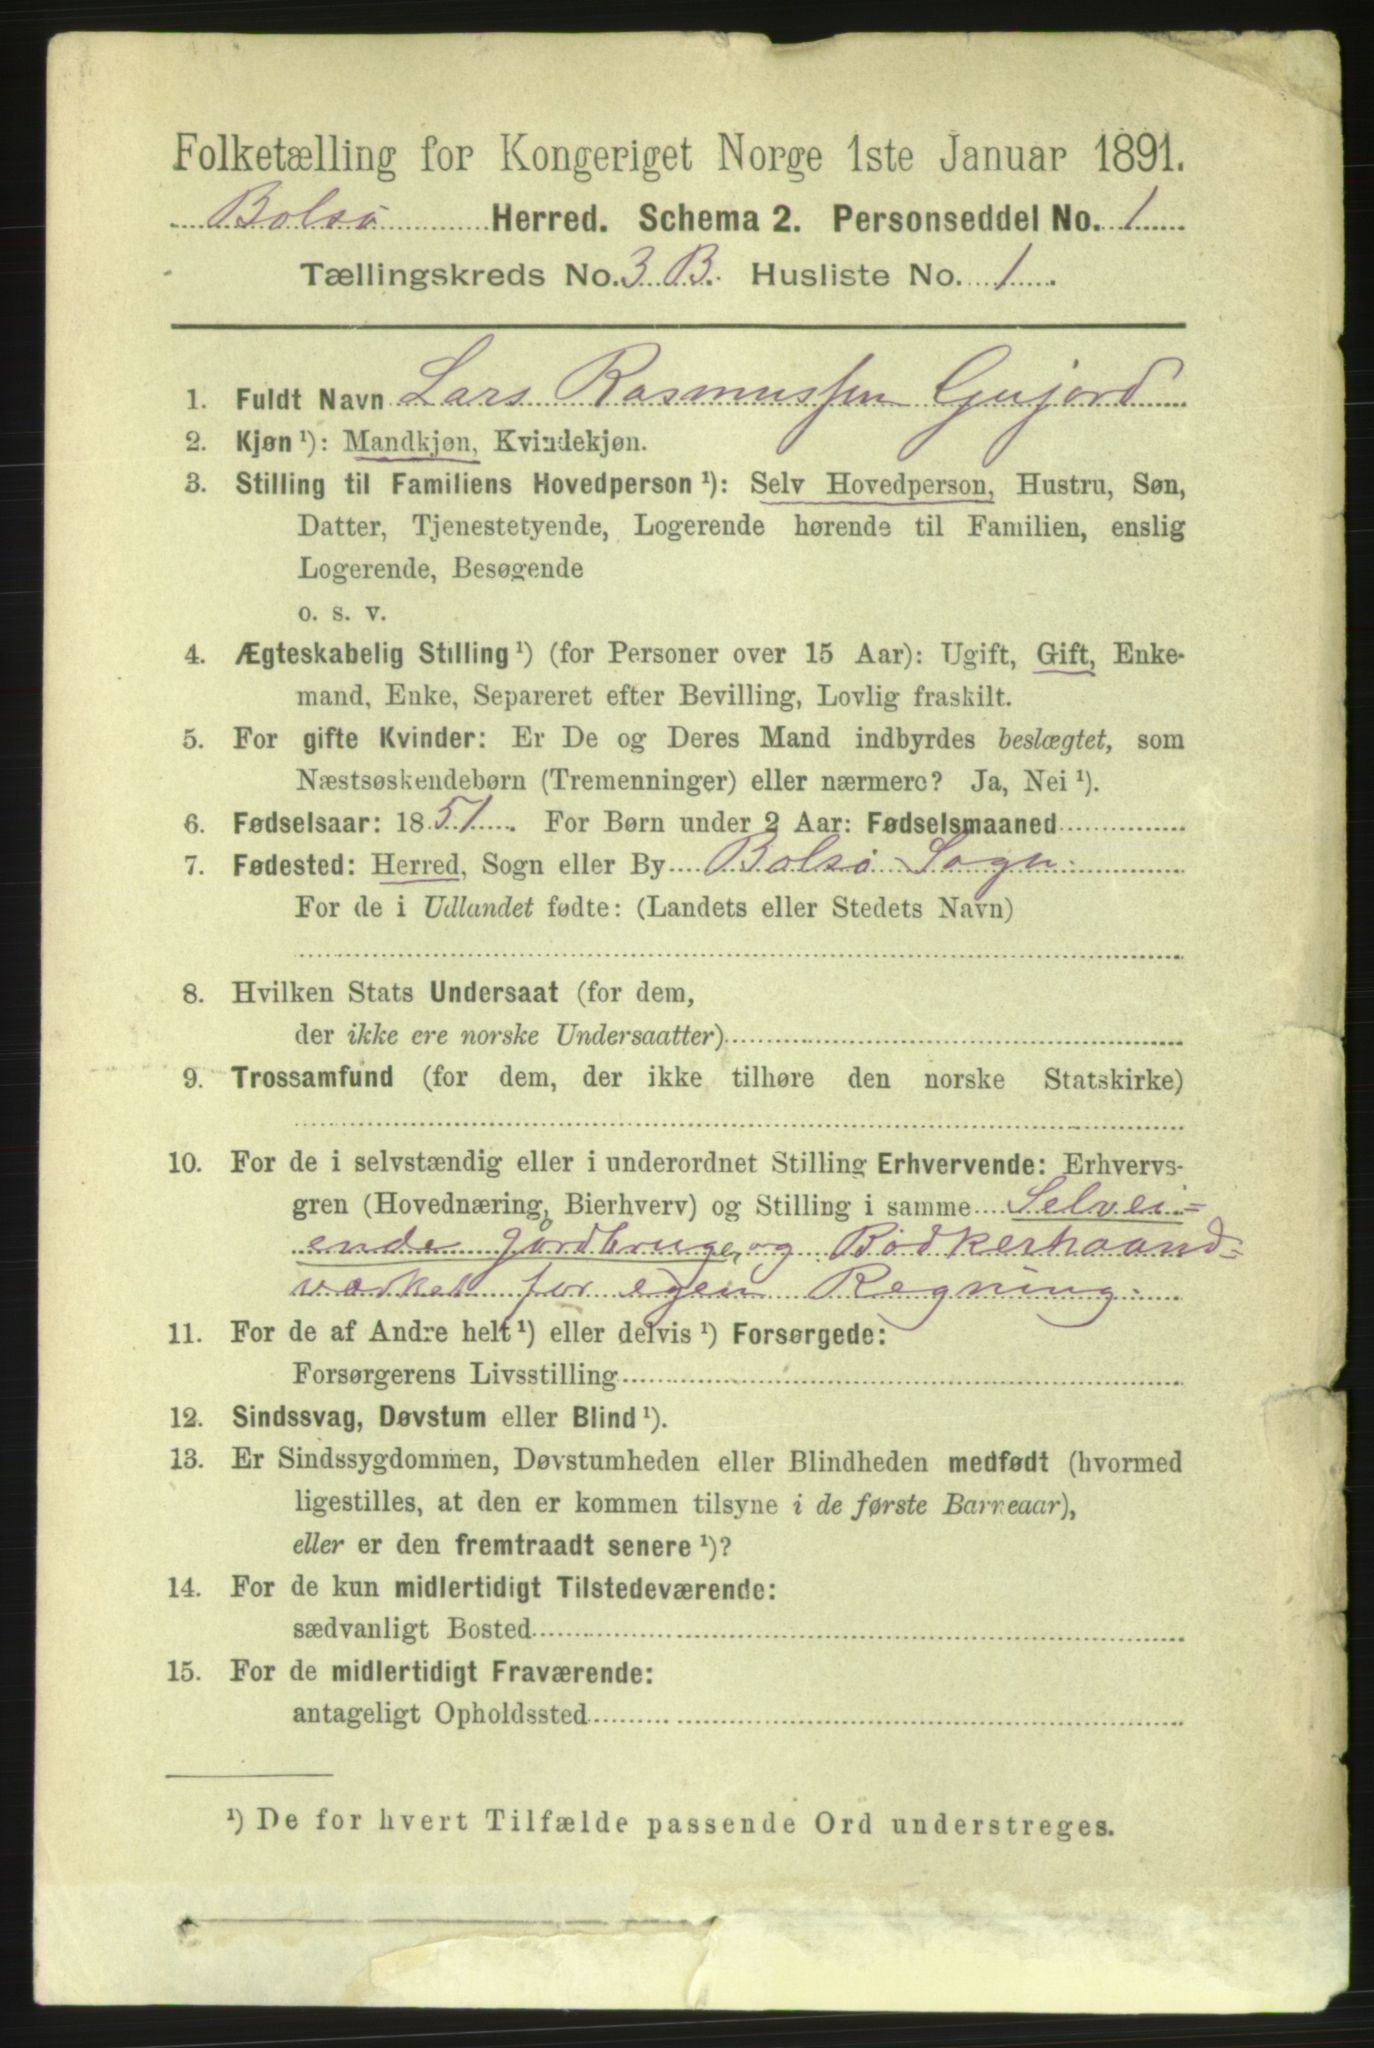 Folketælling for Kongeriget Norge 1ste Januar 1891.
Bolsø Herred. Schema 2. Personseddel No. 1
Tællingskreds No. 3 B. Husliste No. 1
1. Fuldt Navn Lars Rasmussen Gujord
2. Kjøn ¹): Mandkjøn, Kvindekjøn.
3. Stilling til Familiens Hovedperson ¹): Selv Hovedperson, Hustru, Søn,
Datter, Tjenestetyende, Logerende hørende til Familien, enslig
Logerende, Besøgende
o. s. v.
4. Ægteskabelig Stilling ¹) (for Personer over 15 Aar): Ugift, Gift, Enke-
mand, Enke, Separeret efter Bevilling, Lovlig fraskilt.
5. For gifte Kvinder: Er De og Deres Mand indbyrdes beslægtet, som
Næstsøskendebørn (Tremenninger) eller nærmere? Ja, Nei ¹).
6. Fødselsaar: 1851. For Børn under 2 Aar: Fødselsmaaned
7. Fødested: Herred, Sogn eller By Bolsø Sogn.
For de i Udlandet fødte: (Landets eller Stedets Navn)
8. Hvilken Stats Undersaat (for dem,
der ikke ere norske Undersaatter)
9. Trossamfund (for dem, der ikke tilhøre den norske Statskirke)
10. For de i selvstændig eller i underordnet Stilling Erhvervende: Erhvervs-
gren (Hovednæring, Bierhverv) og Stilling i samme Selvei=
ende Jordbruger, og Bødkerhaand=
værket for egen Regning.
11. For de af Andre helt ¹) eller delvis ¹) Forsørgede:
Forsørgerens Livsstilling
12. Sindssvag, Døvstum eller Blind ¹).
13. Er Sindssygdommen, Døvstumheden eller Blindheden medfødt (hvormed
ligestilles, at den er kommen tilsyne i de første Barneaar),
eller er den fremtraadt senere ¹)?
14. For de kun midlertidigt Tilstedeværende:
sædvanligt Bosted
15. For de midlertidigt Fraværende:
antageligt Opholdssted
¹) De for hvert Tilfælde passende Ord understreges.